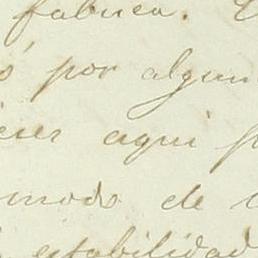 fabrica.
por algun
aqui
modo de
estabilidad